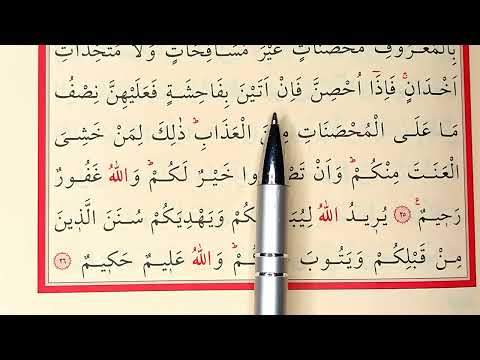 بِالْمَعْرُوفِ مُحْصَنَاتٍ غَيْرَ مُسَافِحَاتٍ وَلَا مُتَّخِذَاتِ
اَخْدَانٍۚ فَاِذَٓا اُحْصِنَّ فَاِنْ اَتَيْنَ بِفَاحِشَةٍ فَعَلَيْهِنَّ نِصْفُ
مَا عَلَى الْمُحْصَنَاتِ الْعَذَابِۜ ذٰلِكَ لِمَنْ خَشِيَ
الْعَنَتَ مِنْكُمْۜ وَاَنْ خَيْرٌ لَكُمْۜ وَاللّٰهُ غَفُورٌ
رَح۪يمٌ۟ ﴿٢٥﴾ يُر۪يدُ اللّٰهُ وَيَهْدِيَكُمْ سُنَنَ الَّذ۪ينَ
مِنْ قَبْلِكُمْ وَيَتُوبَ وَاللّٰهُ عَل۪يمٌ حَك۪يمٌ ﴿٢٦﴾